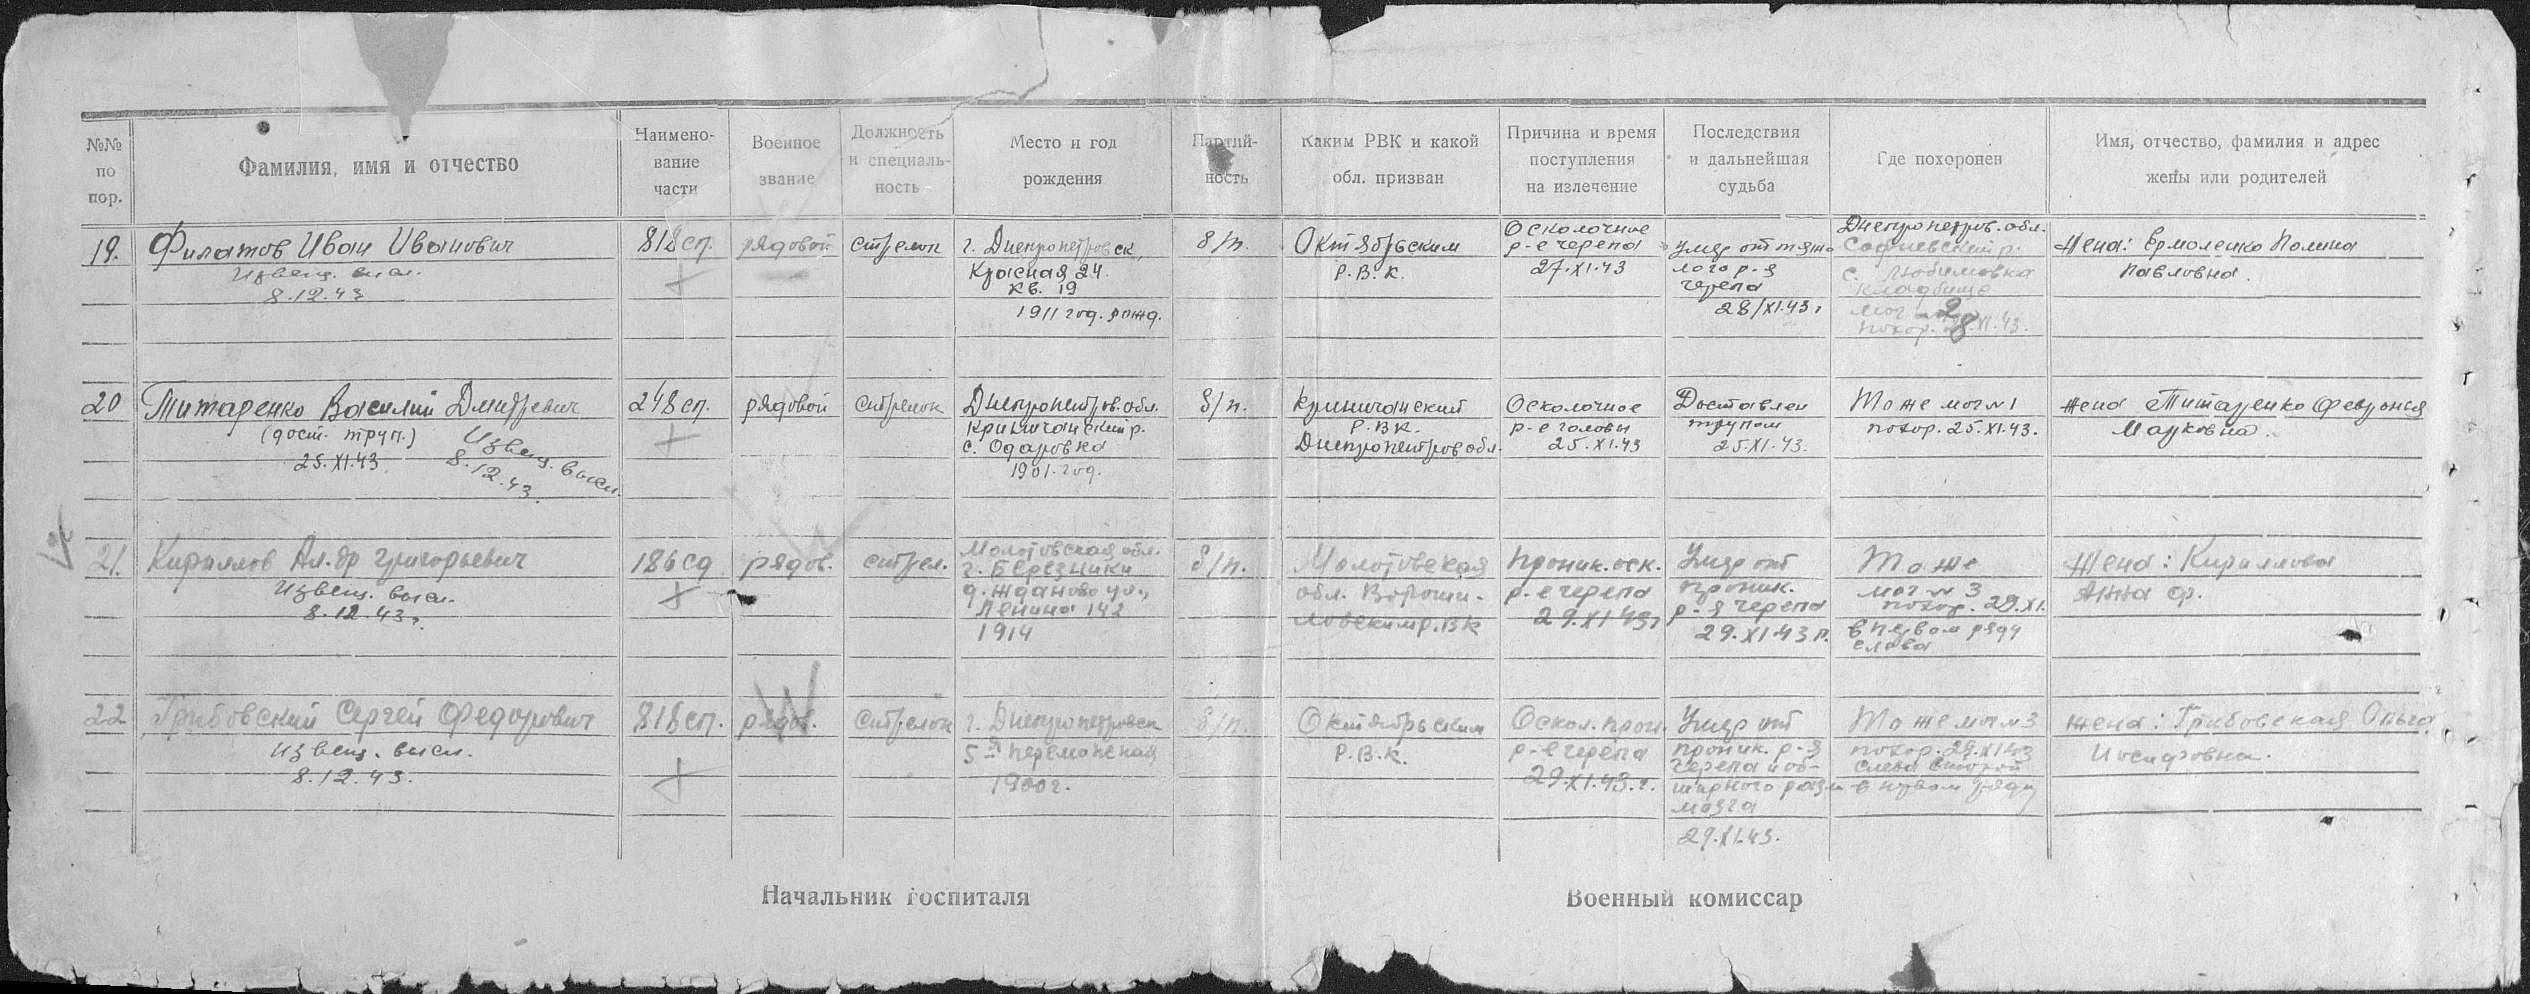 №№ по пор.
Фамилия, имя и отчество
Наимено-
вание
части
Военное
звание
Должность
и специаль-
ность
Место и год
рождения
Партий-
ность
Каким РВК и какой
обл. призван
Причина и время
поступления
на излечение
Последствия
и дальнейшая
судьба
Где похоронен
Имя, отчество, фамилия и адрес
жены или родителей
19.
Филатов Иван Иванович
Извещ. высл.
8.12.43
818 сп.
рядовой
стрелок
г. Днепропетровск,
Красная 24.
кв. 19
1911 год. рожд.
б/п.
Октябрьским
Р.В.К.
Осколочное
р-е черепа
27.XI.43
умер от тяже
лого р-я
черепа
28/XI.43г
Днепропетров. обл.
Софиевский р.
с. Любимовка
кладбище
мог 2
похор. 28.XI.43.
Жена: Ермоленко Полина
Павловна.
20
Титаренко Василий Дмитревич
(дост. труп.)
25.XI.43
Извещ. высл.
8.12.43.
248 сп.
рядовой
стрелок
Днепропетров. обл.
Криничанский р.
с. Одаровка
1901 год.
б/п.
Криничанский
Р.В.К.
Днепропетров обл.
Осколочное
р-е головы
25.XI.43
Доставлен
трупом
25.XI.43.
То же мог №1
похор. 25.XI.43.
жена Титаренко Февронья
Марковна.
21.
Кириллов Ал-др Григорьевич
Извещ. высл.
8.12.43г.
186 сд
рядов.
стрел.
Молотовская обл.
г. Березники
д. Жданово ул.,
Ленина 142
1914
б/п.
Молотовская
обл. Вороши-
ловским р.ВК
Проник. оск.
р-е черепа
29.XI.43г
Умер от
проник.
р-я черепа
29.XI.43 г.
То же
мог № 3
похор. 29.XI.
в первом ряду
слева
Жена: Кириллова
Анна Ф.
22
Грибовский Сергей Федорович
Извещ. высл.
8.12.43.
818 сп.
рядов.
стрелок
г. Днепропетровск
5-я
1900г.
б/п.
Октябрьским
Р.В.К.
Оскол. прон.
р-е черепа
29.XI.43.г.
Умер от
проник. р-я
черепа и об-
ширного разм
мозга
29.XI.43.
То же мог № 3
похор. 29.XI.43
слева второй
в первом ряду
жена: Грибовская Ольга
Иосифовна.
Начальник госпиталя
Военный комиссар